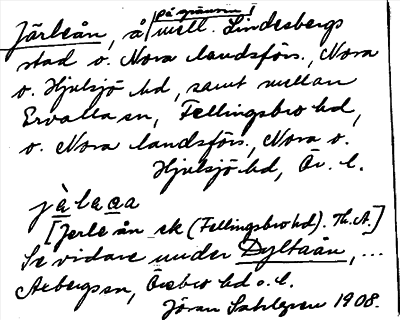 på gränsen
Järleån, å mell. Lindesbergs
stad o. Nora landsförs., Nora
o. Hjulsjö hd, samt mellan
Ervalla sn, Fellingsbro hd,
o. Nora landsförs., Nora o.
Hjulsjö hd, Ör. l.
jälaa
[Jerle ån ek (Fellingsbro hd). Th. A.]
Se vidare under Dyltaån, ...
Axbergs sn, Örebro hd o. l.
Jöran Sahlgren 1908.